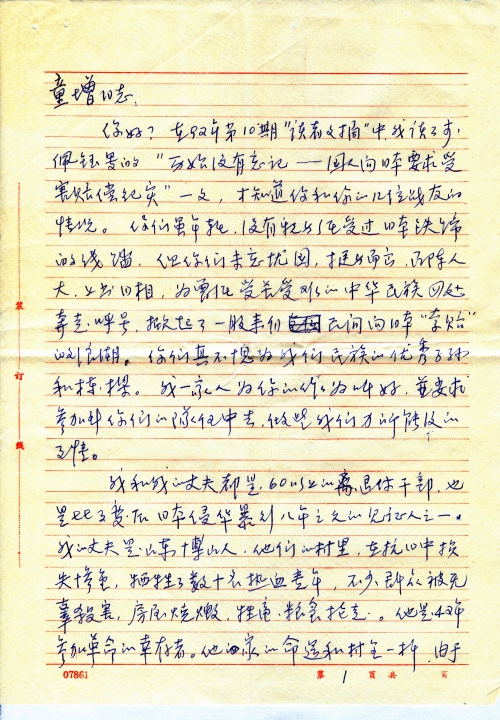 童增同志:
你好?在92年第10期"读者文摘"中,我读了
佩钰写的"历史没有忘记——国人向日本要求受
害赔偿纪实"一文,才知道你和你的几位战友的
情况。你们虽年轻,没有亲身经受过日本铁蹄
的践踏,但你们未忘忧国,挺身而出,
为曾饱受苦受难的中华民族四处
奔走呼号,掀起了一股来自民间向日本"索赔"
的浪潮。你们真不愧为我们民族的优秀子孙
和栋樑。我一家人为你的作为叫好,并要求
参加到你们的队伍中去,做些我们力所能及的
事情。
我和我的丈夫都是60以上的离退休干部,也
是日本侵华暴行八年之久的见证人之一。
我的丈夫是山东博山人,他们的村里,在抗日中损
失惨重,牺牲了数十名热血青年,不少群众被无
辜殺害,房屋烧燬,牲畜、粮食抢走。他是42年
参加革命的幸存者。他家的命运和村里一样,由于
装
订
线
07861
第 1 页 共 页